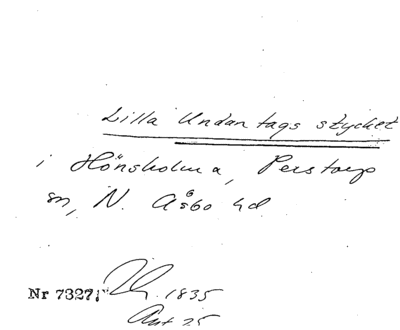 Lilla Undantagsstycket
i Hönsholma, Perstorp
sn, N. Åsbo hd
Nr 7327. 1835
Ant. 25